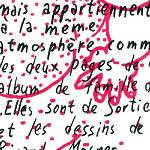 mais appartiennent
a la même
atmosphère comm
les deux pages de
album de famille d
. Elles sont de sortie
et les dessins de